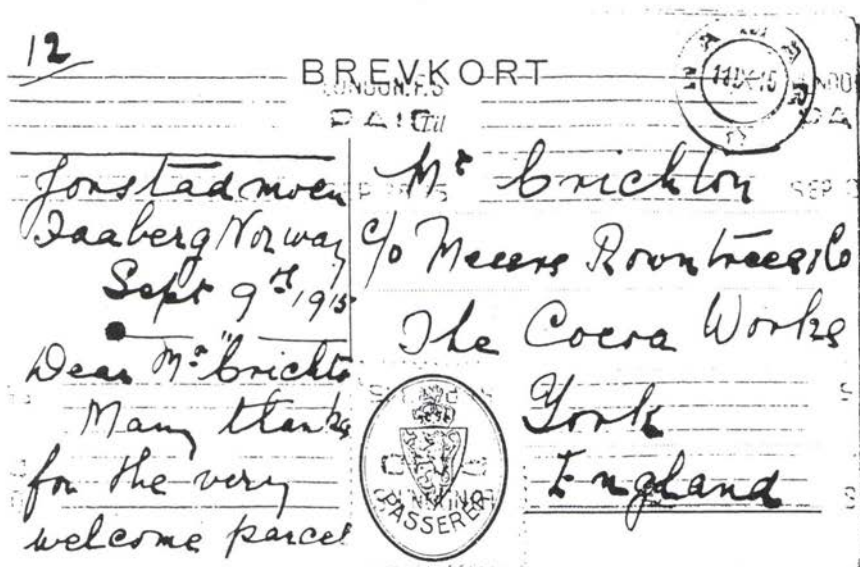 12
BREVKORT
LONDON. F.S
PAID
Til
11 IX 15
Jorstadmoen
Faaberg Norway
Sept 9th 1915
Dear Mr Crichto
Many thanks
for the very
welcome parcel
Mr Crichton
c/o Messrs Rowntrees & Co
The Cocoa Works
York
England
PASSERER